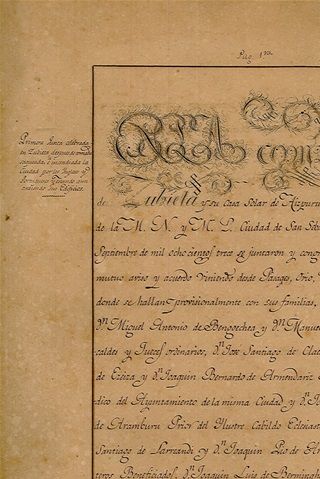 Pag. 1ra
Primera Junta celebrada
en Zubieta despues de tomada
saqueada, é incendiada la
Ciudad por los Ingleses y
Portugueses
cañesdo sus Edificios.
EN LA COM
de Zubieta y su casa Solar de Aizpurua
de la M. N. y M. L. Ciudad de San Seb
Septiembre de mil ochocientos trece se juntaron y cong
mutuo aviso y acuerdo viniendo desde Pasages, Orio,
donde se hallan provisionalmente con sus familias,
Dn. Miguel Antonio de Bengoechea y Dn. Manuel
calde y Jueces ordinarios, Dn. José Santiago de Clae
de Eceiza y Dn. Joaquin Bernardo de Armendariz
dico del Ayuntamiento de la misma Ciudad y Dn. Jo
de Aramburu Prior del Illustre Cabildo Eclesiast
Santiago de Larrandi y Dn. Joaquin Pio de Ar
teros Beneficiados, Dn. Joaquin Luis de Bermingh